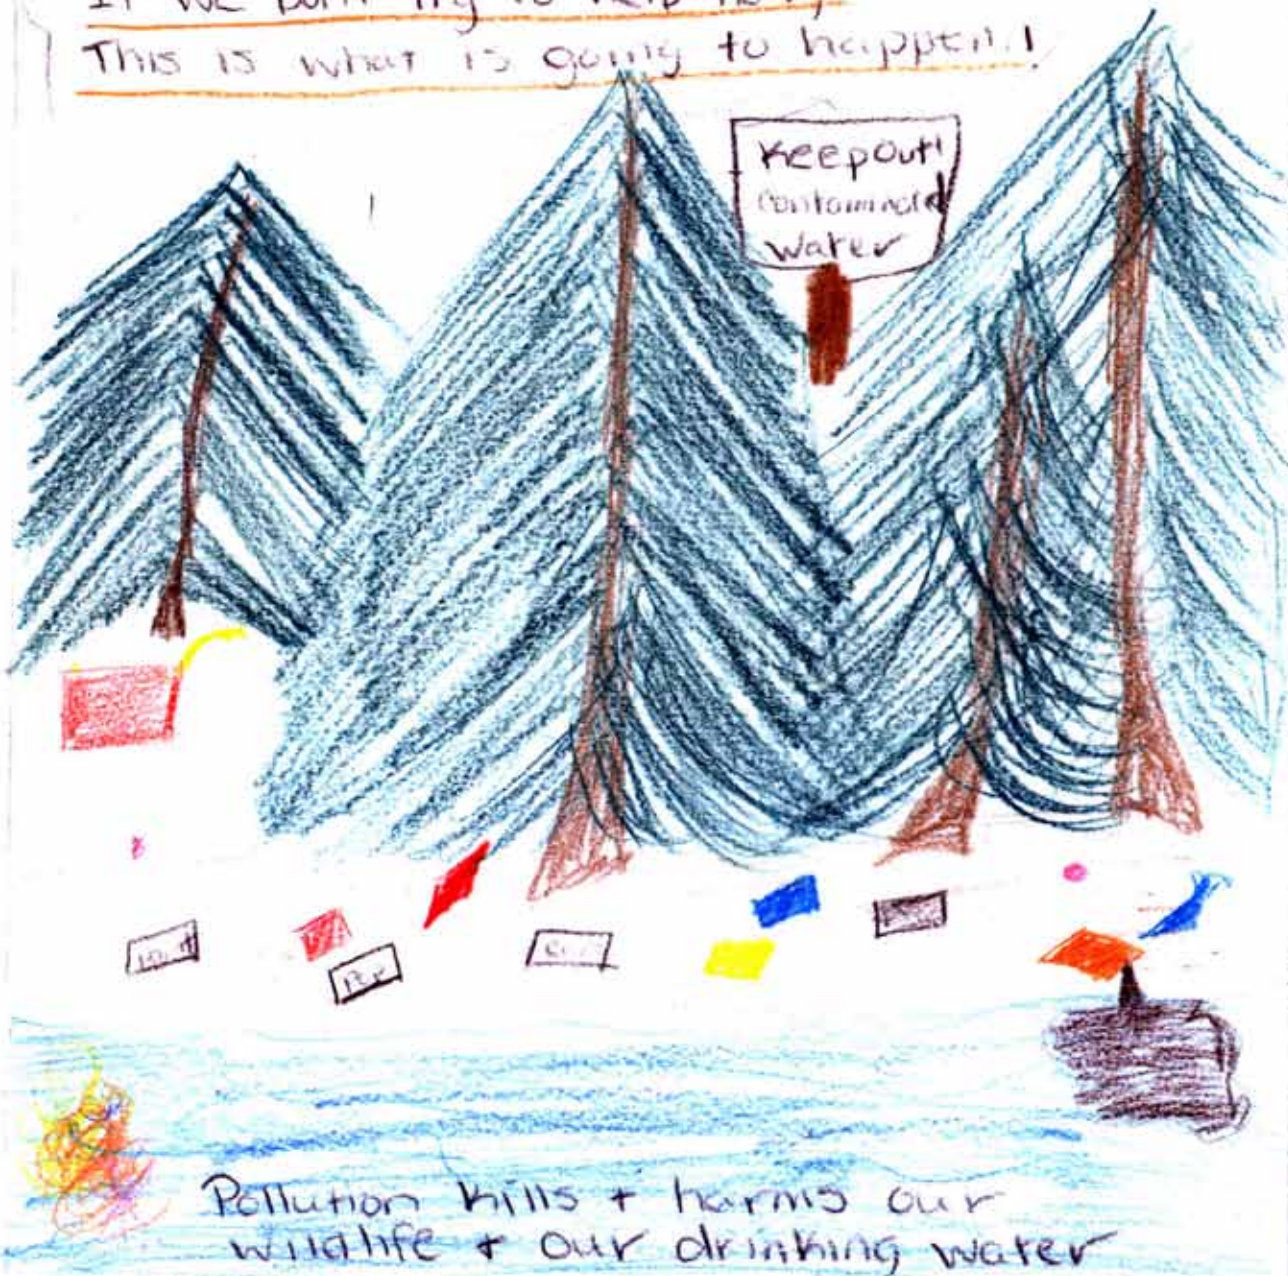 If we don't try to help now,
This is what is going to happen!
Keep Out!
Contaminated
Water
Pop
Pollution kills + harms our
wildlife + our drinking water